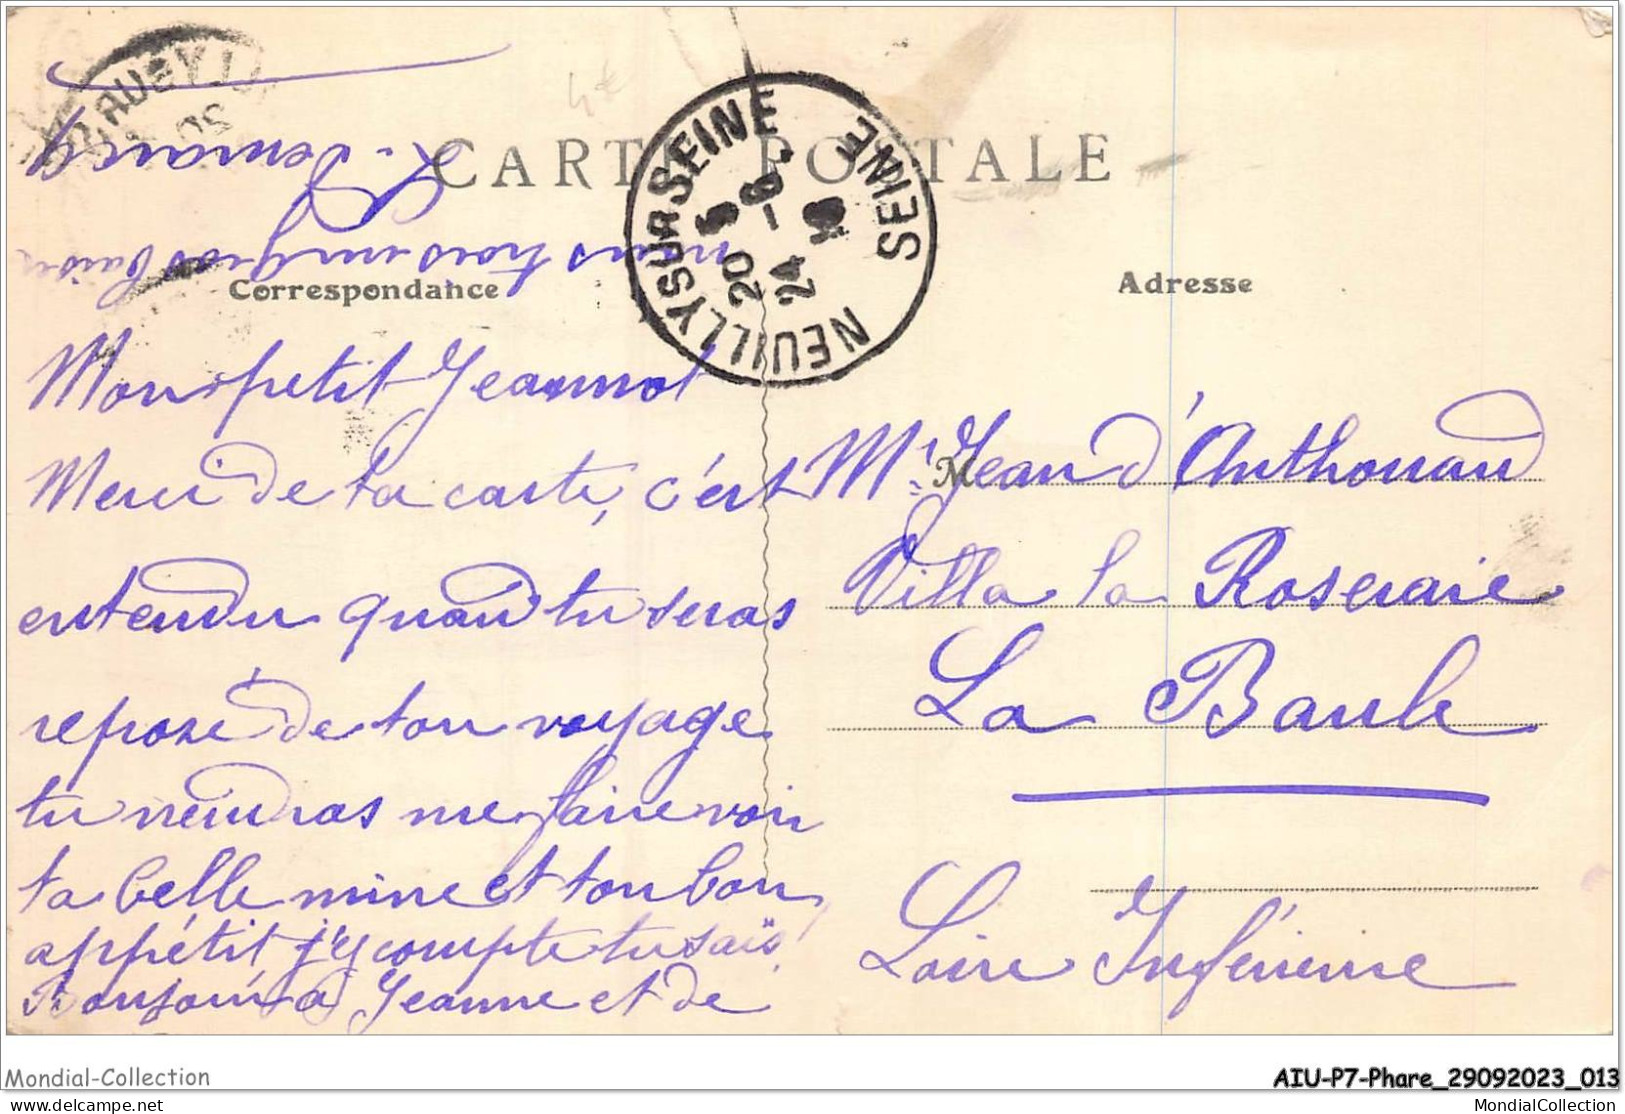 CARTE POSTALE
Correspondance
Adresse
NEUILLY SUR SEINE
SEINE
20
24
Mon petit Jeannot
Merci de ta carte, c'est
entendu quand tu seras
reposé de ton voyage
tu viendras me faire voir
ta belle mine et ton bon
appétit j'y compte tu sais!
Bonjour à Jeanne et de
nous trois un gros baiser
L.
Mr Jean d'Anthouard
M
Villa la Roseraie
La Baule
Loire Inférieure
Mondial-Collection
delcampe.net
AIU-P7-Phare_29092023_013
MondialCollection